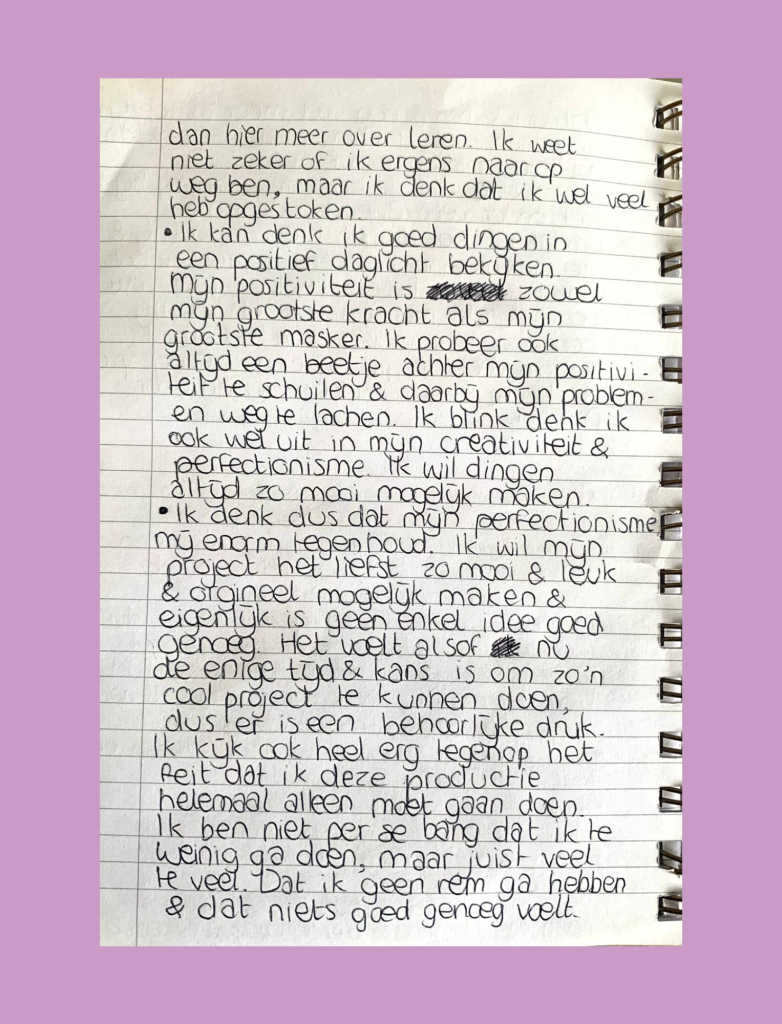 dan hier meer over leren. Ik weet
niet zeker of ik ergens naar op
weg ben, maar ik denk dat ik wel veel
heb opgestoken.
• Ik kan denk ik goed dingen in
een positief daglicht bekijken.
mijn positiviteit is zowel
mijn grootste kracht als mijn
grootste masker. Ik probeer ook
altijd een beetje achter mijn positivi-
teit te schuilen & daarbij mijn problem-
en weg te lachen. Ik blink denk ik
ook wel uit in mijn creativiteit &
perfectionisme. Ik wil dingen
altijd zo mooi mogelijk maken.
• Ik denk dus dat mijn perfectionisme
mij enorm tegenhoud. Ik wil mijn
project het liefst zo mooi & leuk
& orgineel mogelijk maken &
eigenlijk is geen enkel idee goed
genoeg. Het voelt alsof nu
de enige tijd & kans is om zo'n
cool project te kunnen doen,
dus er is een behoorlijke druk.
Ik kijk ook heel erg tegenop het
feit dat ik deze productie
helemaal alleen moet gaan doen.
Ik ben niet per se bang dat ik te
weinig ga doen, maar juist veel
te veel. Dat ik geen rem ga hebben
& dat niets goed genoeg voelt.